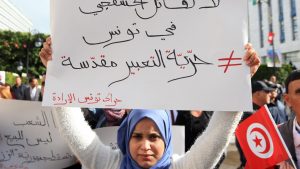 لا لقاتل خاشقجي
في تونس
# حريّة التعبير مقدّسة
حراك تونس الإرادة
الشعب
ليس للبيع